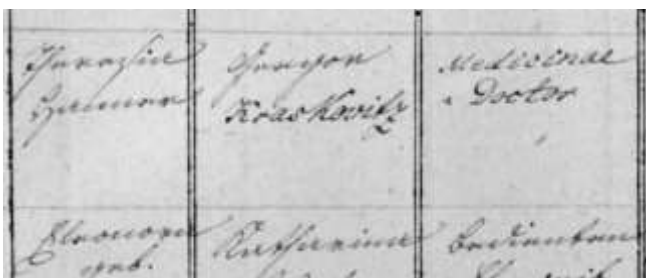 Theresia
Hammer
Gregor
Kraskovitz
Medicinae
Doctor
Eleonora
geb.
Katharina
Bedienten